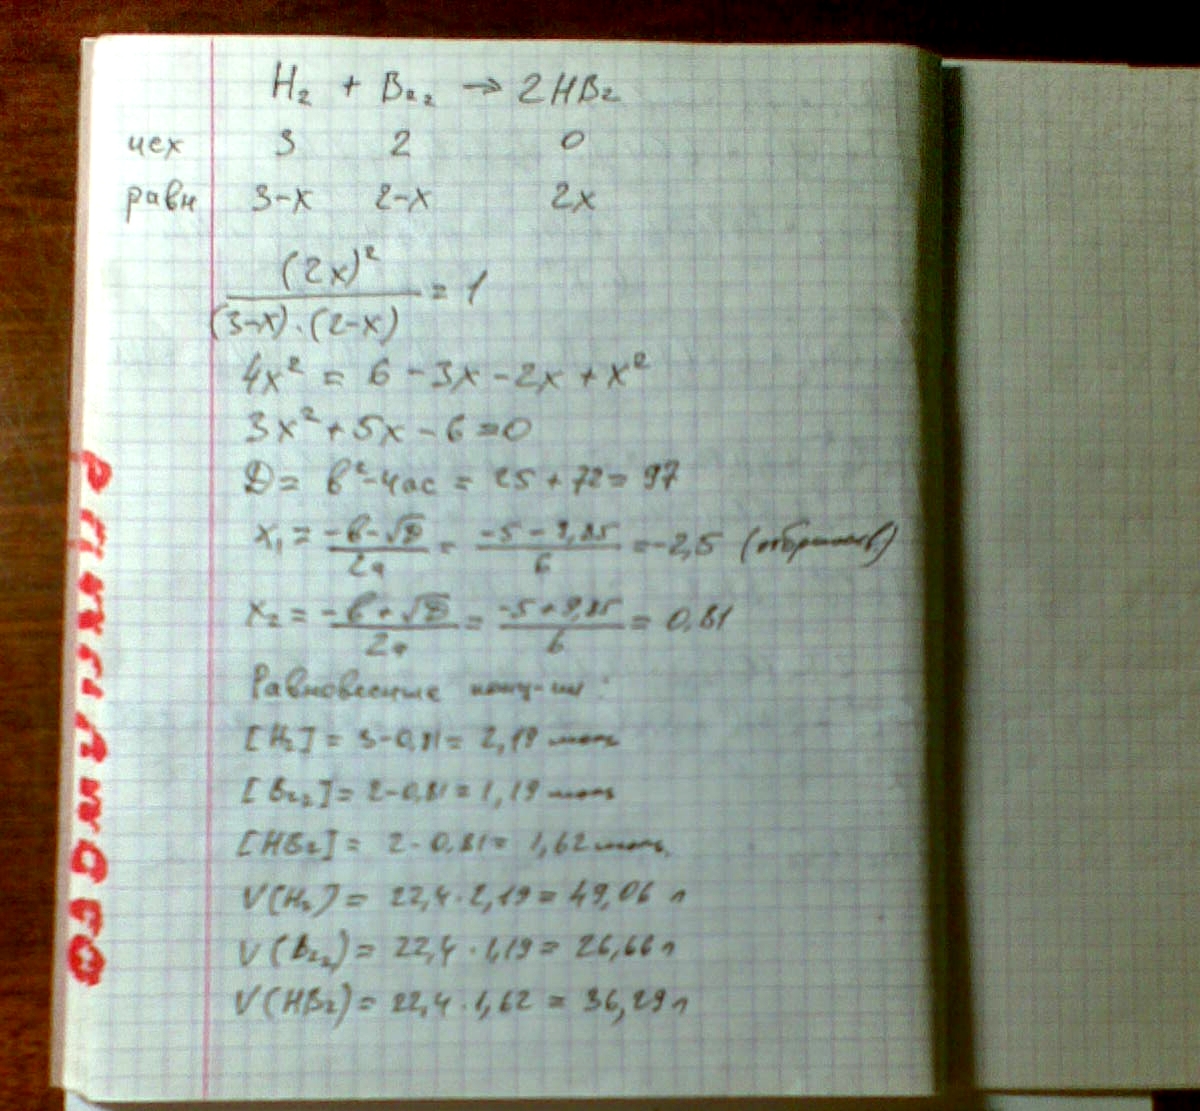 H₂ + Br₂ → 2HBr
исх 3 2 0
равн 3-x 2-x 2x
(2x)²
———— = 1
(3-x)·(2-x)
4x² = 6 - 3x - 2x + x²
3x² + 5x - 6 = 0
D = b² - 4ac = 25 + 72 = 97
x₁ = (-b-√D)/2a = (-5-9,85)/6 = -2,5 (отбрасыв.)
x₂ = (-b+√D)/2a = (-5+9,85)/6 = 0,81
Равновесные конц-ии:
[H₂] = 3-0,81 = 2,19 моль
[Br₂] = 2-0,81 = 1,19 моль
[HBr] = 2·0,81 = 1,62 моль
V(H₂) = 22,4·2,19 = 49,06 л
V(Br₂) = 22,4·1,19 = 26,66 л
V(HBr) = 22,4·1,62 = 36,29 л